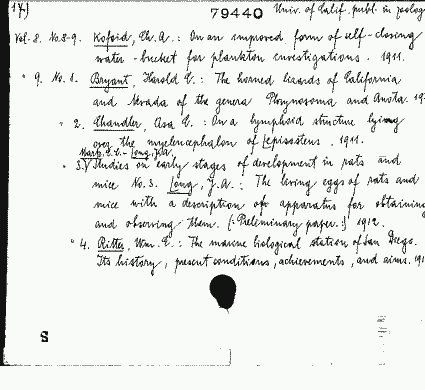 17.) 79440 Univ. of Calif. publ. in zoolog
Vol. 8. No. 8-9. Kofoid, Ch. A.: On an improved form of self-closing
water-bucket for plankton investigations. 1911.
" 9. No. 1. Bryant, Harold C.: The horned lizards of California
and Nevada of the genera Phrynosoma and Anota. 19
" 2. Chandler, Asa C.: On a lymphoid structure lying
over the myelencephalon of Lepisosteus. 1911.
Mark, E. L. - Long, J. A.:
" 3. Studies on early stages of development in rats and
mice No. 3. Long, J. A.: The living eggs of rats and
mice with a description of apparatus for obtaining
and observing them. (: Preliminary paper. :) 1912.
" 4. Ritter, Wm. E.: The marine biological station of San Diego.
Its history, present conditions, achievements, and aims. 191
S